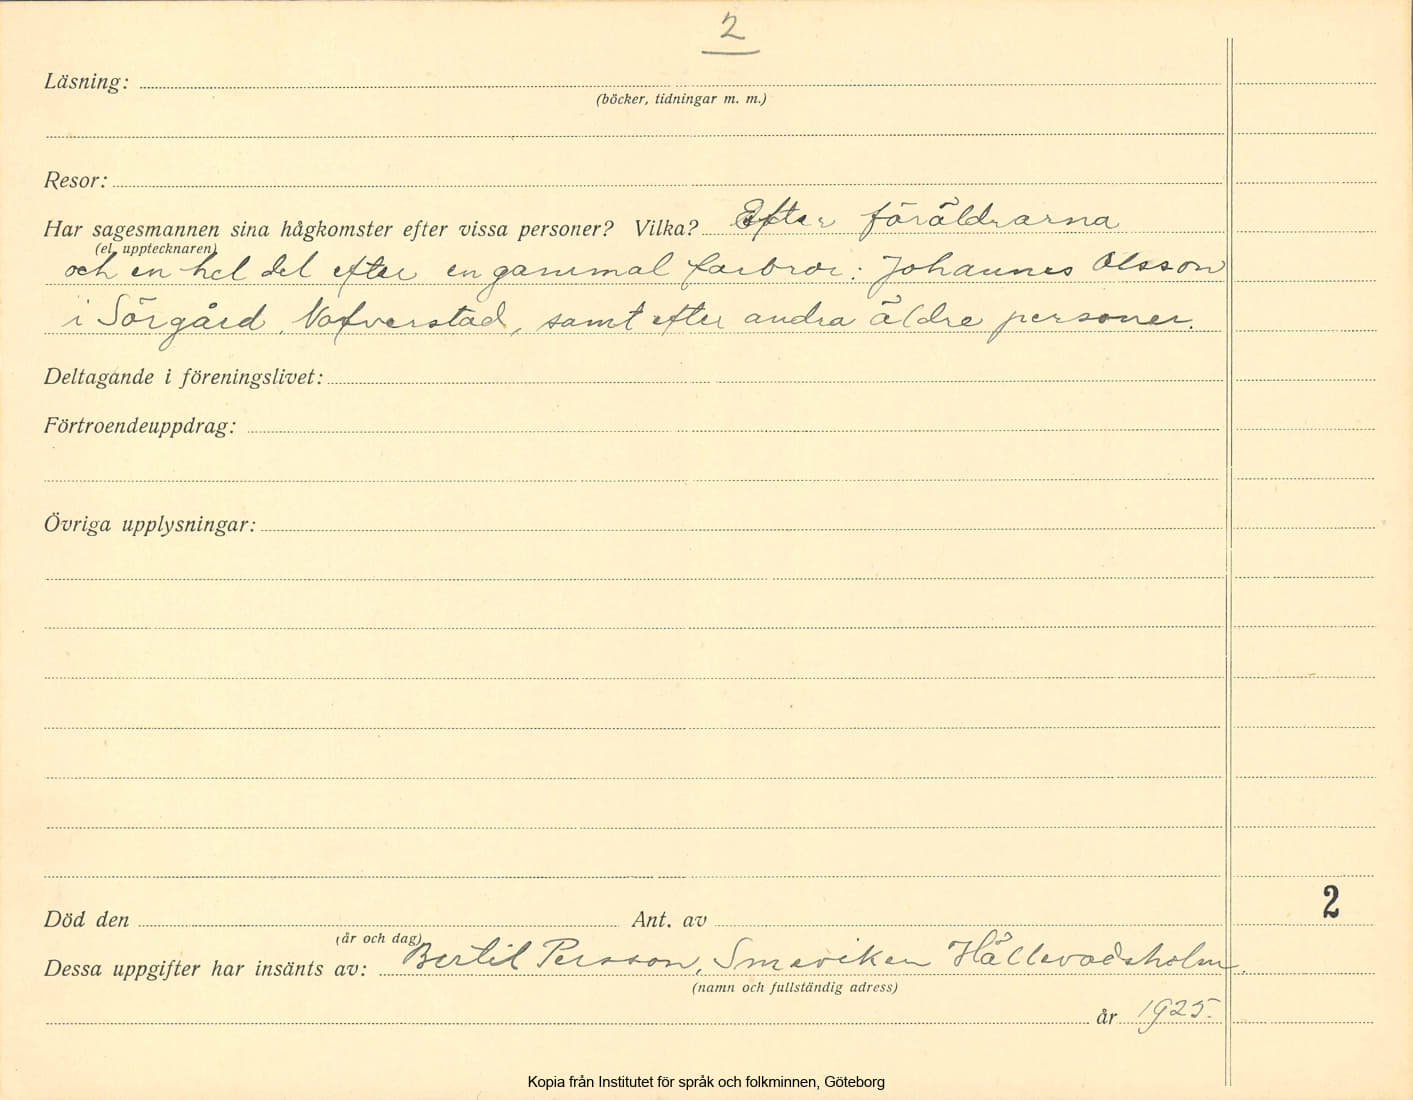 2
Läsning:
(böcker, tidningar m. m.)
Resor:
Har sagesmannen sina hågkomster efter vissa personer? Vilka? Efter föräldrarna
(el. upptecknaren)
och en hel del efter en gammal farbror: Johannes Olsson
i Sörgård, Nafverstad, samt efter andra äldre personer.
Deltagande i föreningslivet:
Förtroendeuppdrag:
Övriga upplysningar:
2
Död den Ant. av
(år och dag)
Dessa uppgifter har insänts av: Bertil Persson, Smeviken Hällevadsholm.
(namn och fullständig adress)
år 1925.
Kopia från Institutet för språk och folkminnen, Göteborg